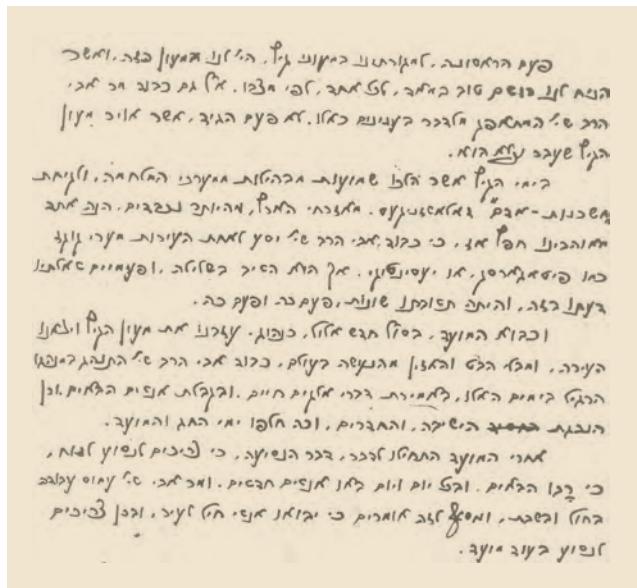 פעם הראשונה, למגורתינו במעוני גיץ, הי׳ לנו במעון כזה, ואשר
הניח לנו רושם טוב במאד, לכל אחד, לפי מצבו. אך גם כבוד מר אבי
הרב שי׳ המתאפק מלדבר בענינים כאלו, לא פעם הגיד, אשר אויר מעון
הקיץ שעבר נעלה הוא.
בימי הקיץ אשר הלכו שמועות מבהילות ממערכי המלחמה, ולקיחת
משכנות-אדם" מאזרחי הארץ, מהיותר נכבדים, הנה אחד
מאוהבינו חפץ אז, כי כבוד אבי הרב שי׳ יסע לאחת העירות מערי קוקז
כמו פיטאגארסק, או יעסינטיקי. אך הוא השיב בשלילה, ופעמיים שאלתיו
דעתו בזה, והיתה תשובתו שונות, פעם כה ופעם כה.
וכבוא המועד, בסוף חדש אלול, כנהוג, עזבנו את מעון הקיץ ויצאנו
העירה, ומבלי הבט והאזין מהנעשה בעולם, כבוד אבי הרב שי׳ התנהג במנהגו
הרגיל בימים האלו, באמירת דברי אלקים חיים, ובקבלת אנשים הבאים, וכן
הנהגת הישיבה, והחדרים, וכה חלפו ימי החג והמועד.
אחרי המועד התחילו לדבר, דבר הנסיעה, כי צריכים לנסוע לנוח,
כי רבו הבאים, ובכל יום ויום באו אנשים חדשים, ומר אבי שי׳ עמוס עבודה
בחול ובשבת, ומסעף לזה אומרים כי יבואו אנשי חיל לעיר, ובכן צריכים
לנסוע בעוד מועד.